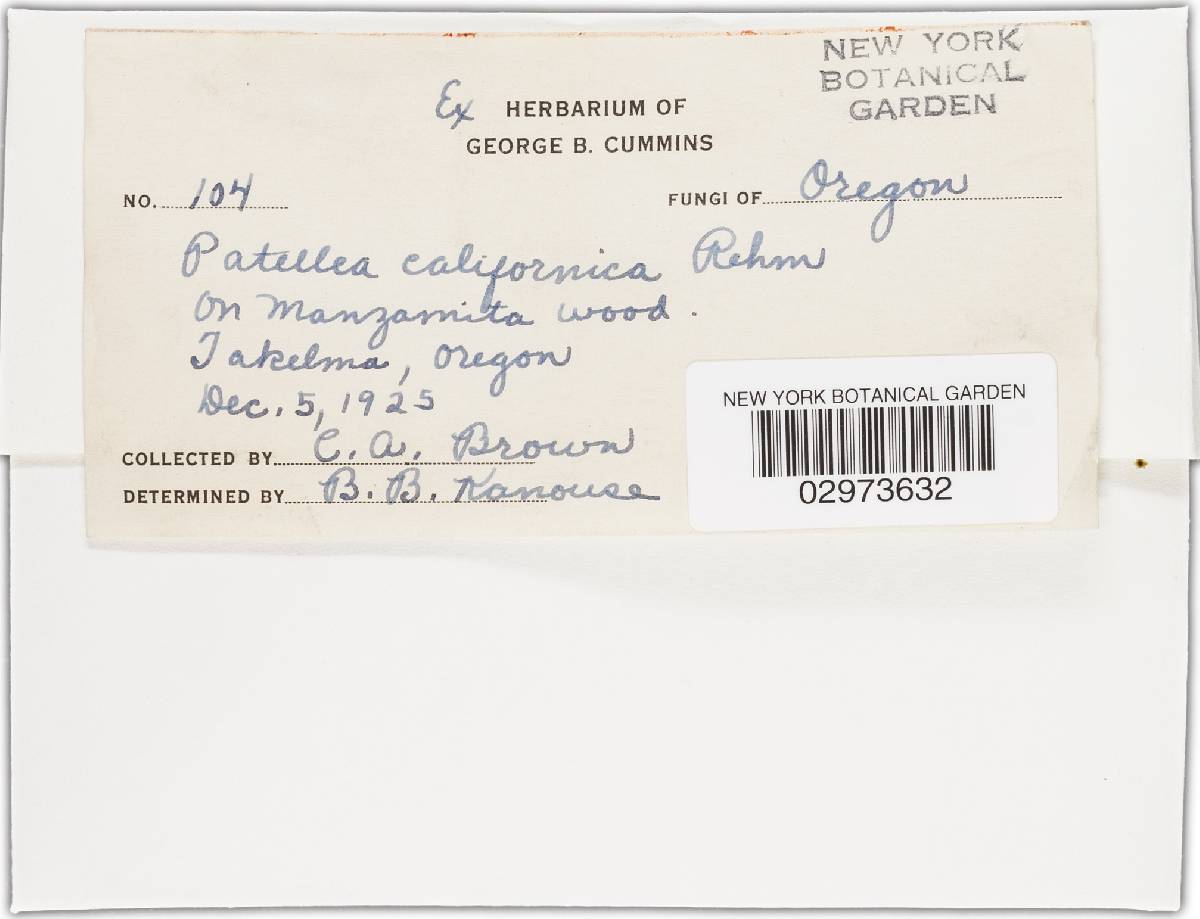 NEW YORK
BOTANICAL
GARDEN
Ex HERBARIUM OF
GEORGE B. CUMMINS
NO. 104 FUNGI OF Oregon
Patellea californica Rehm
On Manzamita wood.
Takelma, Oregon
Dec. 5, 1925
COLLECTED BY C. A. Brown
DETERMINED BY B. B. Kanouse
NEW YORK BOTANICAL GARDEN
02973632